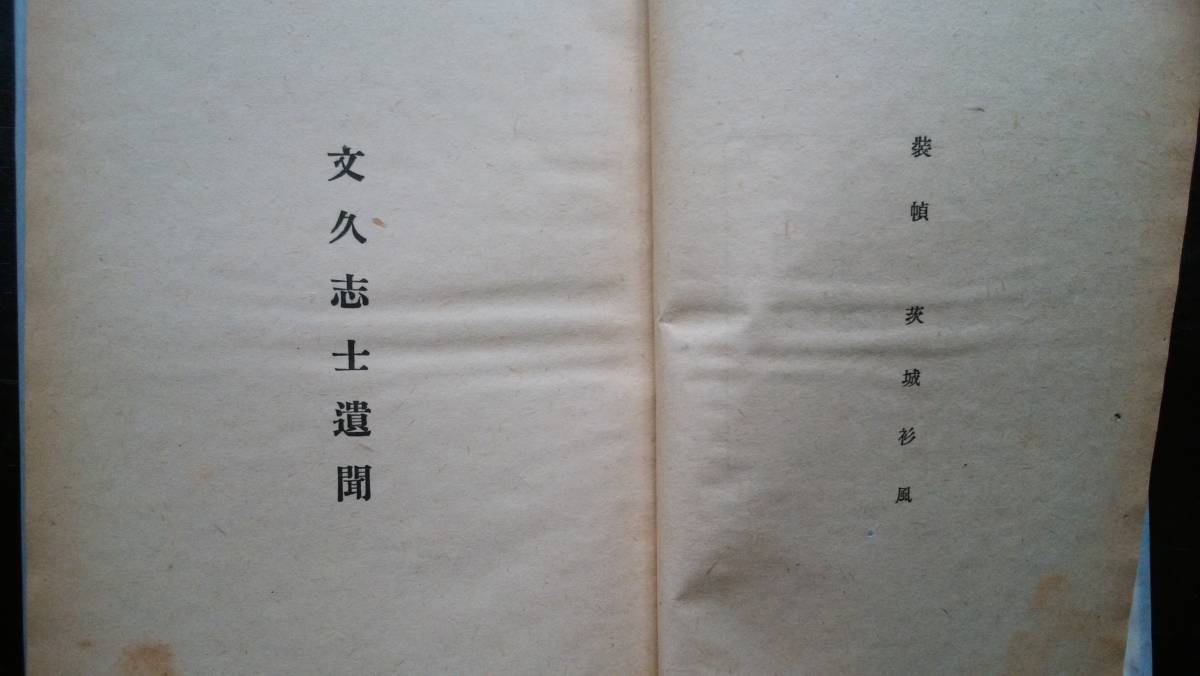 裝幀 茨城衫風
文久志士遺聞